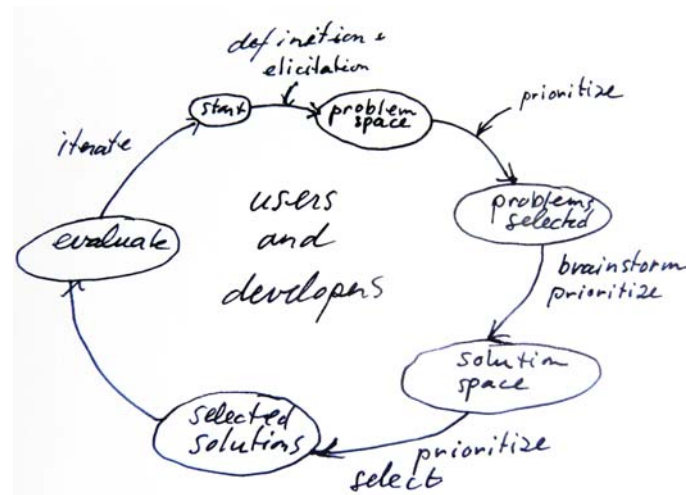 definition &
elicitation
start
problem
space
prioritize
problems
selected
brainstorm
prioritize
solution
space
prioritize
select
selected
solutions
evaluate
iterate
users
and
developers